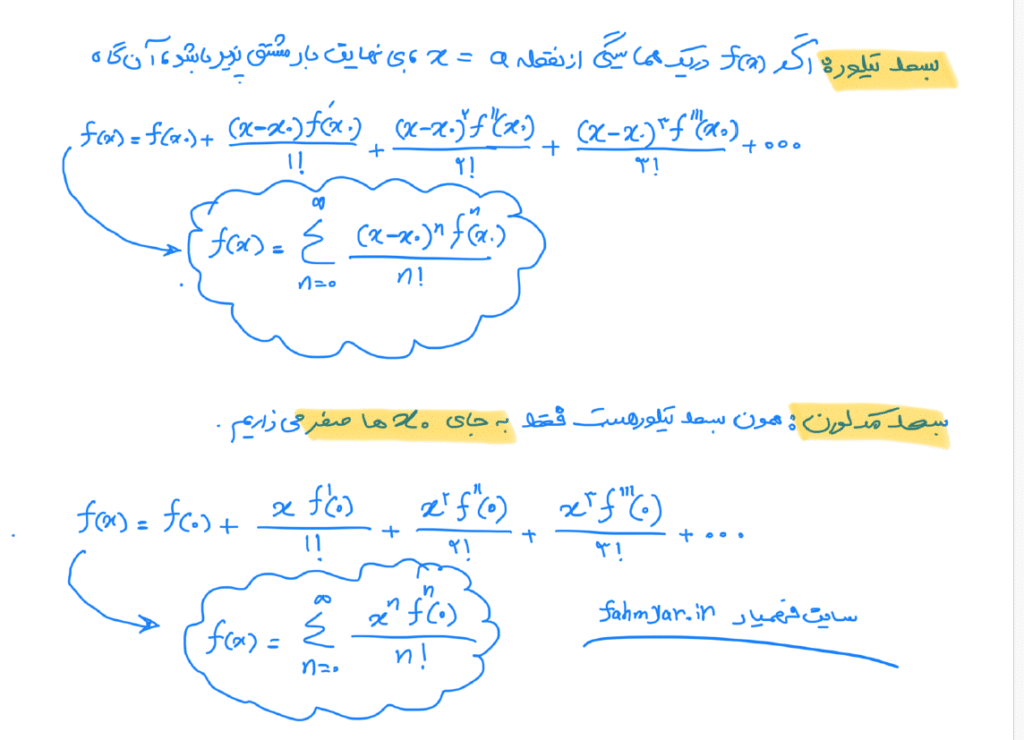 بسط تیلور: اگر f(x) در یک همسایگی از نقطه x = a، بی نهایت بار مشتق پذیر باشد، آن گاه
f(x) = f(x₀) + (x-x₀)f′(x₀)/۱! + (x-x₀)^۲ f″(x₀)/۲! + (x-x₀)^۳ f‴(x₀)/۳! + ...
f(x) = Σ_{n=0}^{∞} (x-x₀)^n f^n(x₀)/n!
بسط مک لورن: همون بسط تیلور هست فقط به جای x₀ ها صفر می ذاریم.
f(x) = f(0) + x f′(0)/۱! + x^۲ f″(0)/۲! + x^۳ f‴(0)/۳! + ...
f(x) = Σ_{n=0}^{∞} x^n f^n(0)/n!
سایت فهمیار fahmyar.ir